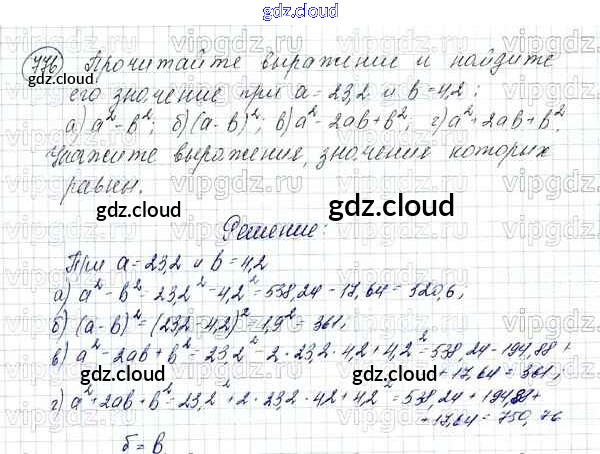 gdz.cloud
776. Прочитайте выражение и найдите
gdz.cloud
его значение при a=23,2 и b=4,2:
а) a²-b²; б) (a-b)²; в) a²-2ab+b²; г) a²+2ab+b².
Укажите выражения, значения которых
равны.
gdz.cloud gdz.cloud
Решение:
При a=23,2 и b=4,2
а) a²-b²=23,2²-4,2²=538,24-17,64=520,6;
б) (a-b)²=(23,2-4,2)²=1,9²=361;
в) a²-2ab+b²=23,2²-2·23,2·4,2+4,2²=538,24-194,88+
+17,64=361;
gdz.cloud gdz.cloud
г) a²+2ab+b²=23,2²+2·23,2·4,2+4,2²=538,24+194,88+
+17,64=750,76
б=в
gdz.cloud